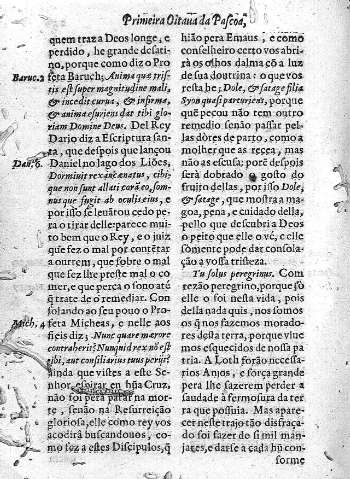 Primeira Oitaua da Pascoa,
quem traz a Deos longe, e
perdido, he grande desati-
no, porque como diz o Pro
Baruc. 2 feta Baruch; Anima quæ tris-
tis est super magnitudine mali,
& incedit curua, & infirma,
& anima esuriens dat tibi glo-
riam Domine Deus. Del Rey
Dario diz a Escriptura san-
ta, que despois que lançou
Dan. 6. Daniel no lago dos Liões,
Dormiuit rex incœnatus, cibi-
que non sunt allati corã eo, som-
nus fugit ab oculis eius, e
por isso se leuãtou cedo pe-
ra o tirar delle: parece mui-
to bem que o Rey, e o juiz
que fez o mal por contẽtar
a outrem, que sobre o mal
que fez lhe preste mal o co
mer, e que perca o sono atè
q̃ trate de o remediar. Con
solando ao seu pouo o Pro-
Mich. 4 feta Micheas, e nelle aos
fieis diz; Nunc quare mœrore
contraheris? Nunquid rex nõ est
tibi, aut consiliarius tuus perijt?
ainda que vistes a este Se-
nhor, espirar en hũa Cruz,
não foi pera parar na mor-
te, senão na Resurreição
gloriosa, elle como rey vos
acodirà buscandouos, co-
mo fez a estes Discipulos, q̃
hião pera Emaus, e como
conselheiro certo vos abri-
rà os olhos dalma cõ a luz
de sua doutrina: o que vos
resta he; Dole, & satage filia
Syon quasi parturiens, porque
que peçou não tem outro
remedio senão passar pel-
las dores de parto, como a
molher que as recea, mas
não as escusa; porẽ despois
serà dobrado o gosto do
fruito dellas, por isso Dole,
& satage, que mostra a ma-
goa, pena, e cuidado della,
pello que descubri a Deos
o peito que elle o vé, e elle
sómente pode dar consola-
ção a vossa tristeza.
Tu solus peregrinus. Com
rezão peregrino, porque só
elle o foi nesta vida, pois
della nada quis, nos somos
os q̃ nos fazemos morado-
res desta terra, porque viue
mos esquecidos de nossa pa
tria. A Loth forão necessa-
rios Anjos, e força grande
pera lhe fazerem perder a
saudade á fermosura da ter
ra que possuia. Mas apare-
cer neste trajo tão disfraça-
do foi fazer do si mil mãn-
jares, e darse a cada hũ con-
forme